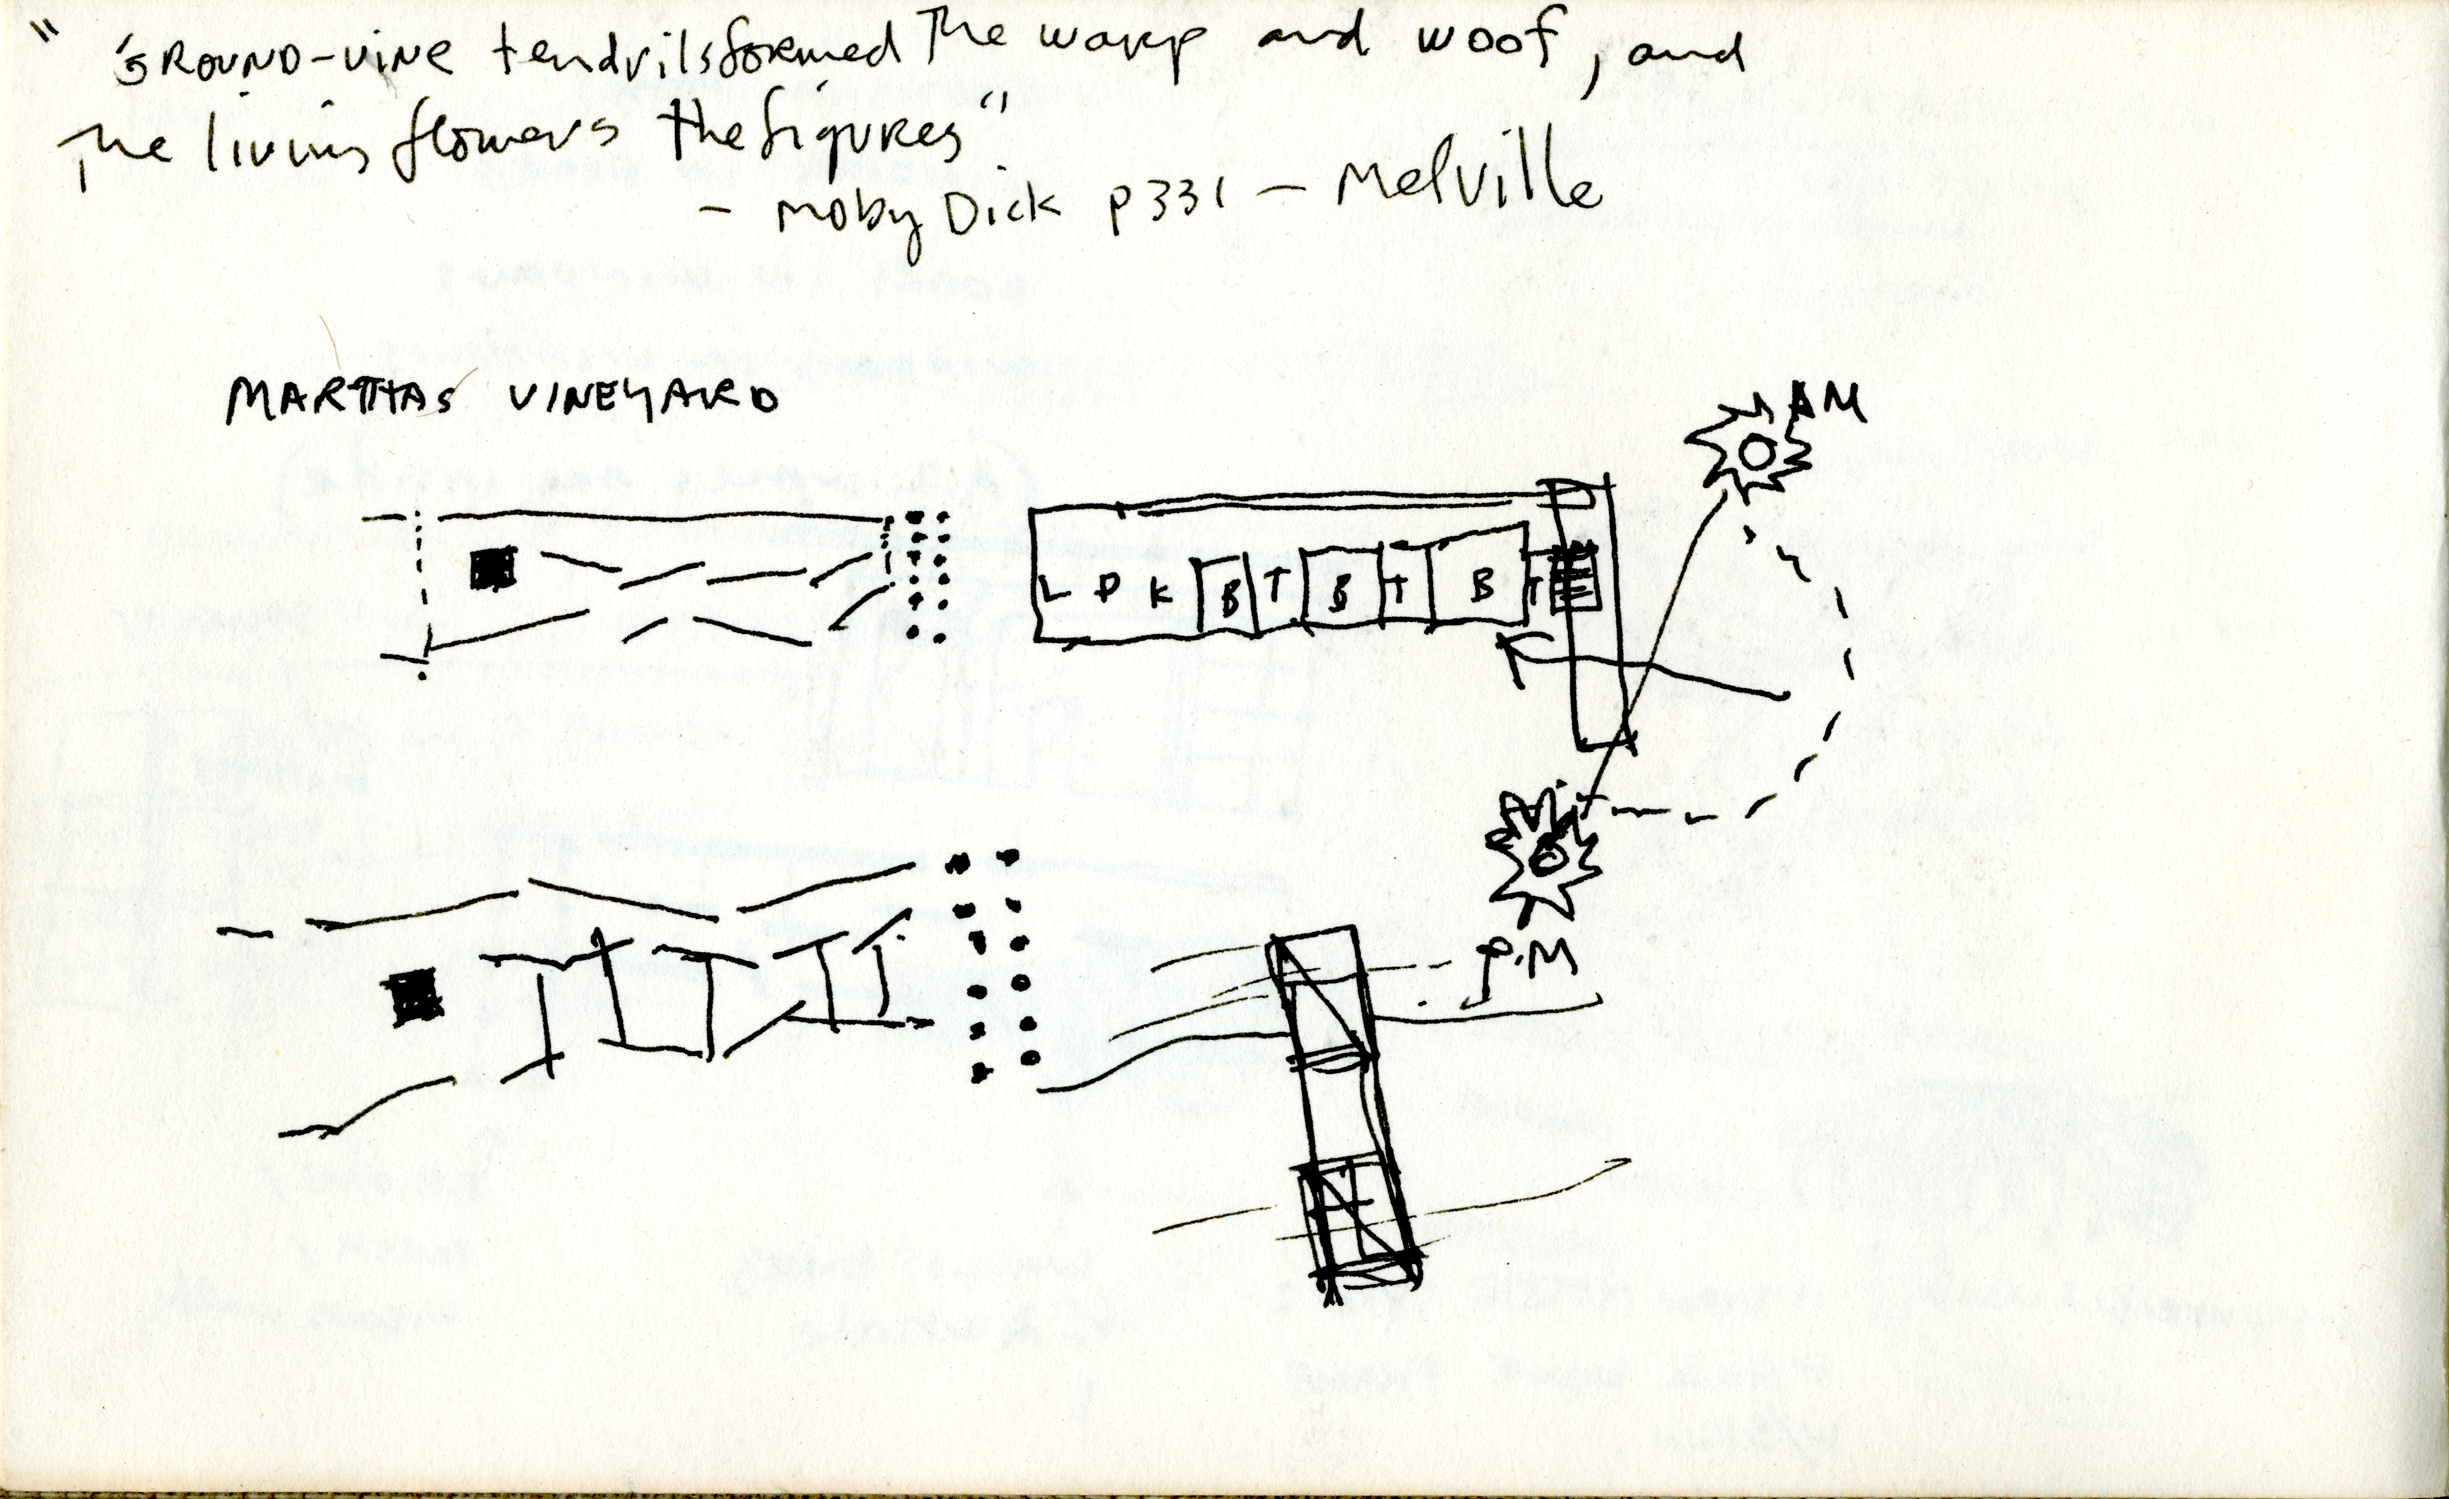 " GROUND-VINE tendrils formed The warp and woof, and
The living flowers the figures".
- Moby Dick p 331 - Melville
MARTHAS VINEYARD
AM
L D K B T B T B T
P.M